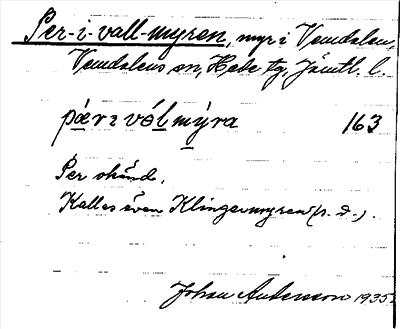 Per-i-vall-myren, myr i Vemdalen,
Vemdalens sn, Hede tg, Jämtl. l.
pær i vål mýra 163
Per okänd.
Kallas även Klingermyren (s. d.).
Johan Anderson 1935